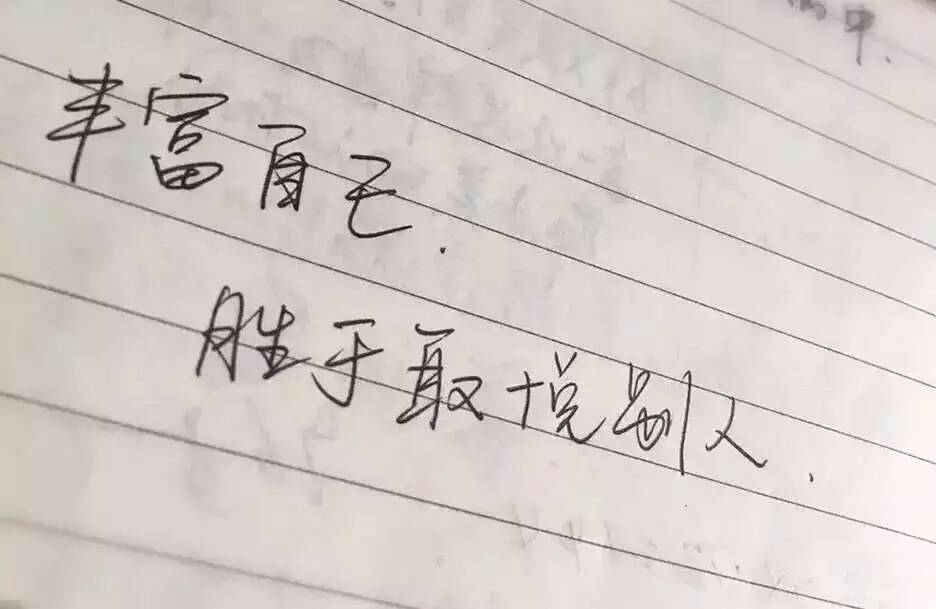 丰富自己.
胜于取悦别人.